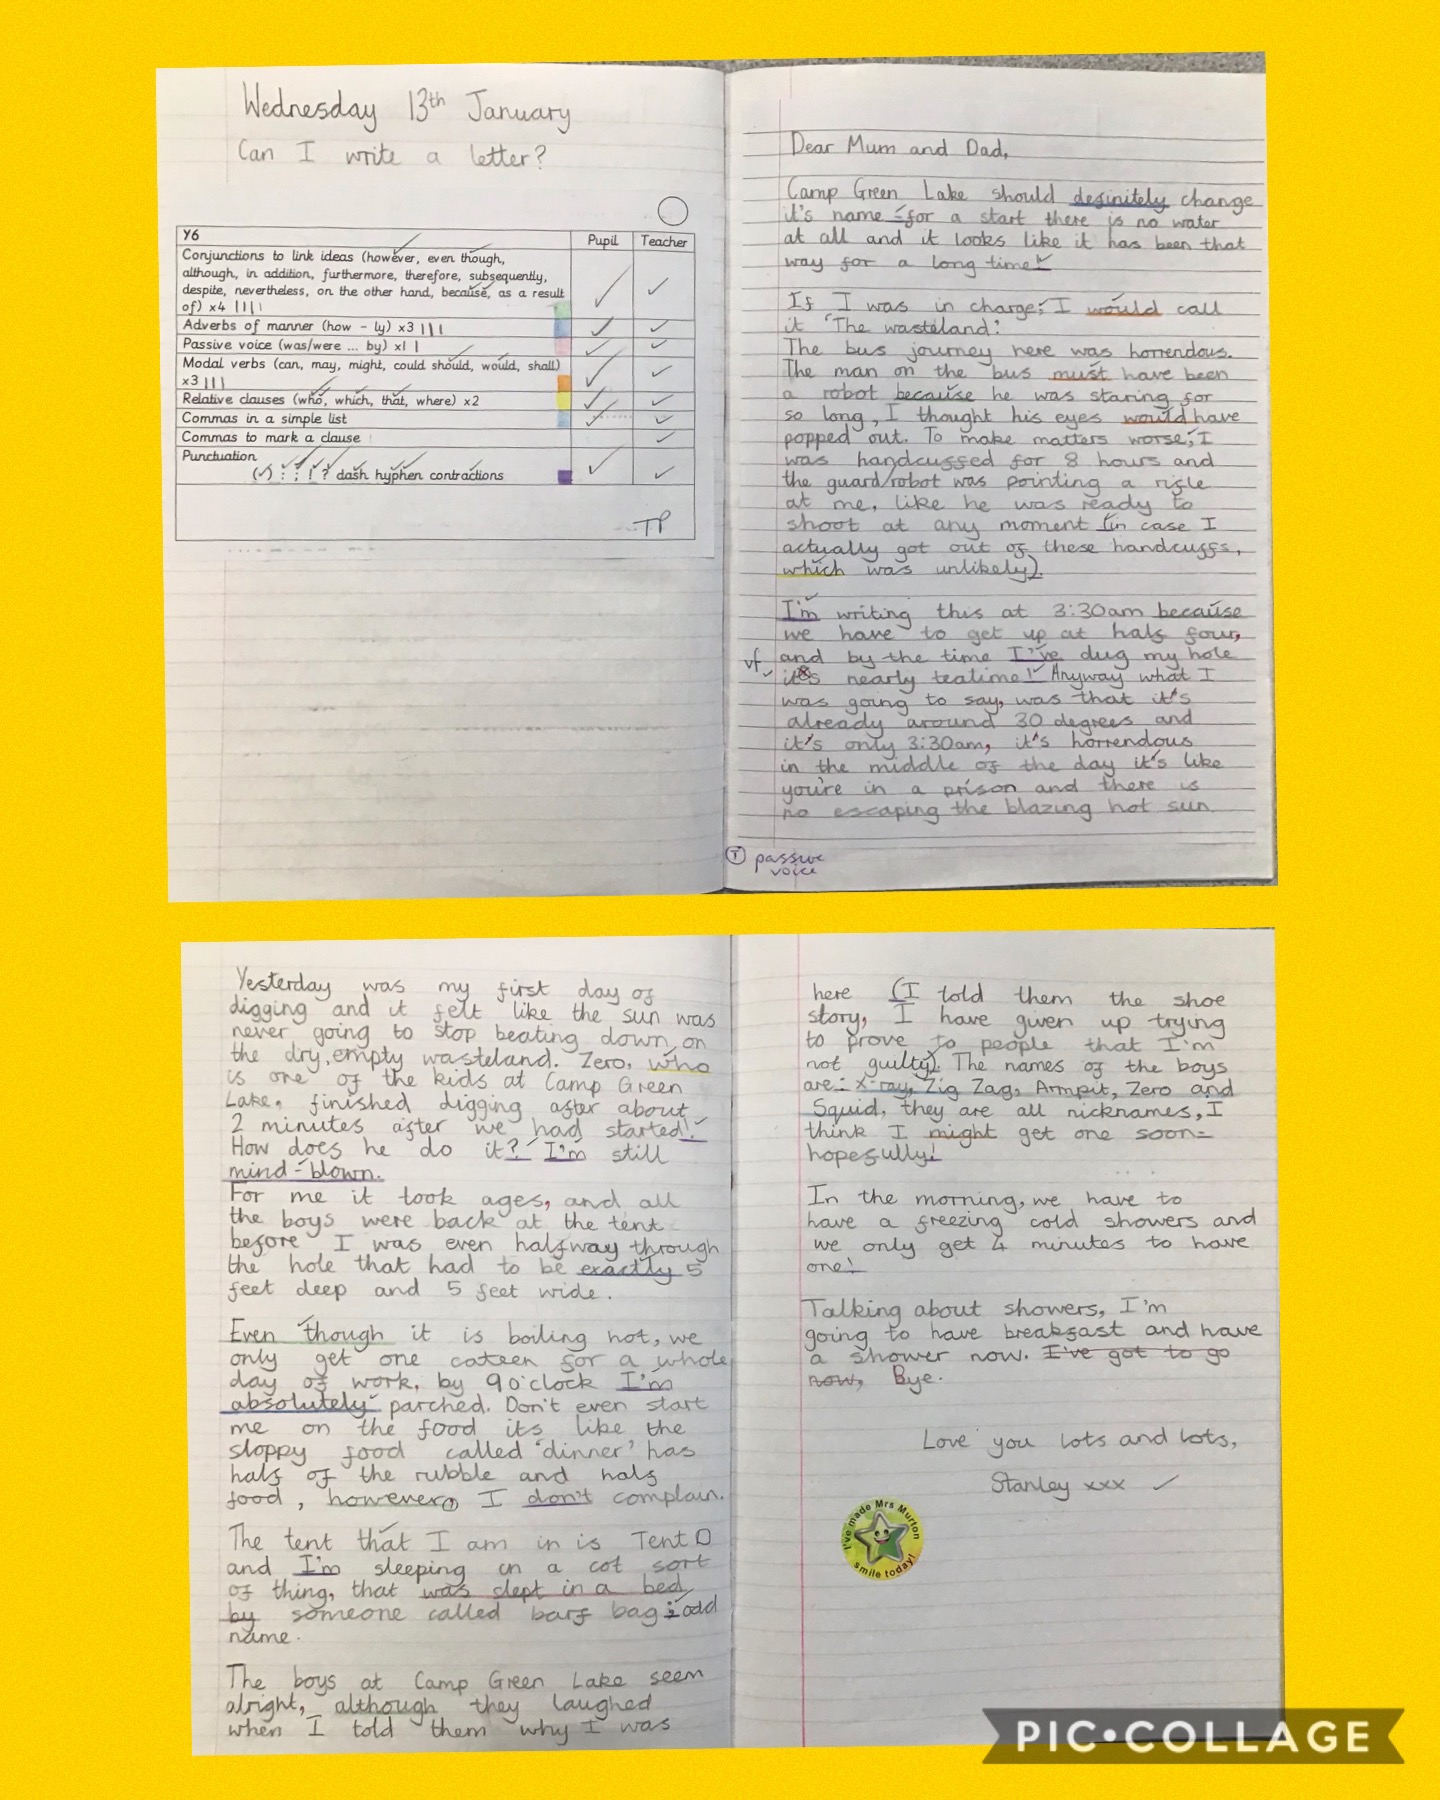 Wednesday 13th January
Can I write a letter?
Y6
Pupil
Teacher
Conjunctions to link ideas (however, even though,
although, in addition, furthermore, therefore, subsequently,
despite, nevertheless, on the other hand, because, as a result
of) x4 ||||
Adverbs of manner (how - ly) x3 |||
Passive voice (was/were ... by) x1 |
Modal verbs (can, may, might, could should, would, shall)
x3 |||
Relative clauses (who, which, that, where) x2
Commas in a simple list
Commas to mark a clause
Punctuation
(✓) : ; ! ? dash hyphen contractions
TP
Dear Mum and Dad,
Camp Green Lake should definitely change
it's name - for a start there is no water
at all and it looks like it has been that
way for a long time!
If I was in charge; I would call
it 'The wasteland'.
The bus journey here was horrendous.
The man on the bus must have been
a robot because he was staring for
so long, I thought his eyes would have
popped out. To make matters worse; I
was handcuffed for 8 hours and
the guard/robot was pointing a rifle
at me, like he was ready to
shoot at any moment (in case I
actually got out of these handcuffs,
which was unlikely).
I'm writing this at 3:30am because
we have to get up at half four,
and by the time I've dug my hole
vf it's nearly teatime! Anyway what I
was going to say, was that it's
already around 30 degrees and
it's only 3:30am, it's horrendous
in the middle of the day it's like
you're in a prison and there is
no escaping the blazing hot sun.
T passive
voice
Yesterday was my first day of
digging and it felt like the sun was
never going to stop beating down on
the dry, empty wasteland. Zero, who
is one of the kids at Camp Green
Lake, finished digging after about
2 minutes after we had started!
How does he do it? I'm still
mind-blown.
For me it took ages, and all
the boys were back at the tent
before I was even halfway through
the hole that had to be exactly 5
feet deep and 5 feet wide.
Even though it is boiling hot, we
only get one cateen for a whole
day of work, by 9 o'clock I'm
absolutely parched. Don't even start
me on the food its like the
sloppy food called 'dinner' has
half of the rubble and half
food, however, I don't complain.
The tent that I am in is Tent D
and I'm sleeping on a cot sort
of thing, that was slept in a bed
by someone called barf bag; odd
name.
The boys at Camp Green Lake seem
alright, although they laughed
when I told them why I was
here (I told them the shoe
story, I have given up trying
to prove to people that I'm
not guilty). The names of the boys
are: X-ray, Zig Zag, Armpit, Zero and
Squid, they are all nicknames, I
think I might get one soon-
hopefully!
In the morning, we have to
have a freezing cold showers and
we only get 4 minutes to have
one!
Talking about showers, I'm
going to have breakfast and have
a shower now. I've got to go
now, Bye.
Love you lots and lots,
Stanley xxx
I've made Mrs Murton
smile today!
PIC•COLLAGE